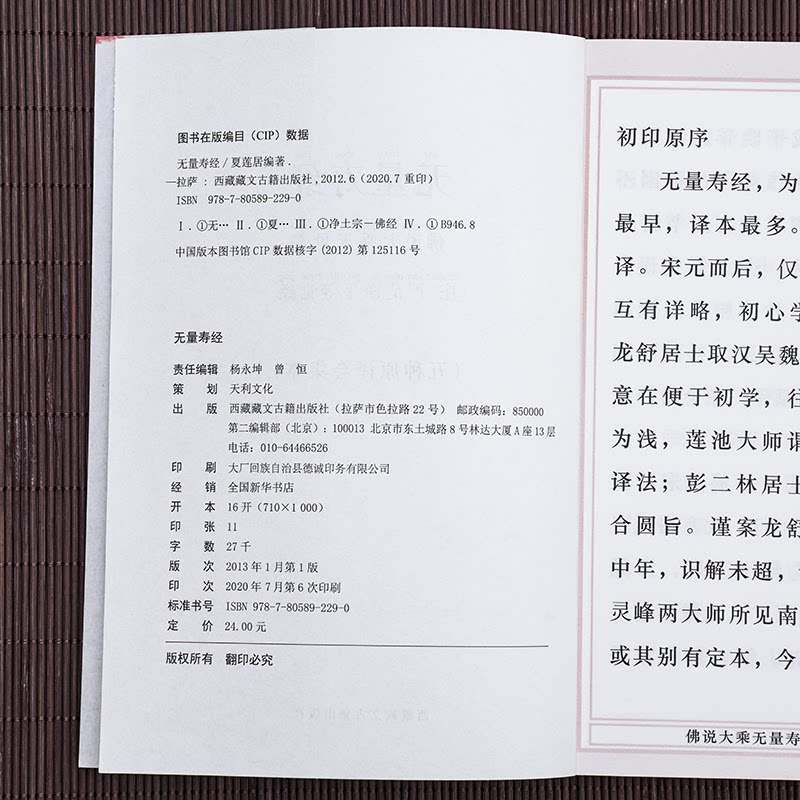 图书在版编目（CIP）数据
无量寿经／夏莲居编著．
—拉萨：西藏藏文古籍出版社，2012.6（2020.7重印）
ISBN 978-7-80589-229-0
Ⅰ．①无… Ⅱ．①夏… Ⅲ．①净土宗－佛经 Ⅳ．①B946.8
中国版本图书馆CIP数据核字（2012）第125116号
无量寿经
责任编辑 杨永坤 曾恒
策划 天利文化
出版 西藏藏文古籍出版社（拉萨市色拉路22号） 邮政编码：850000
第二编辑部（北京）：100013 北京市东土城路8号林达大厦A座13层
电话：010-64466526
印刷 大厂回族自治县德诚印务有限公司
经销 全国新华书店
开本 16开（710×1 000）
印张 11
字数 27千
版次 2013年1月第1版
印次 2020年7月第6次印刷
标准书号 ISBN 978-7-80589-229-0
定价 24.00元
版权所有 翻印必究
初印原序
无量寿经，为
最早，译本最多。
译。宋元而后，仅
互有详略，初心学
龙舒居士取汉吴魏
意在便于初学，往
为浅，莲池大师谓
译法；彭二林居士
合圆旨。谨案龙舒
中年，识解未超，
灵峰两大师所见南
或其别有定本，今
佛说大乘无量寿